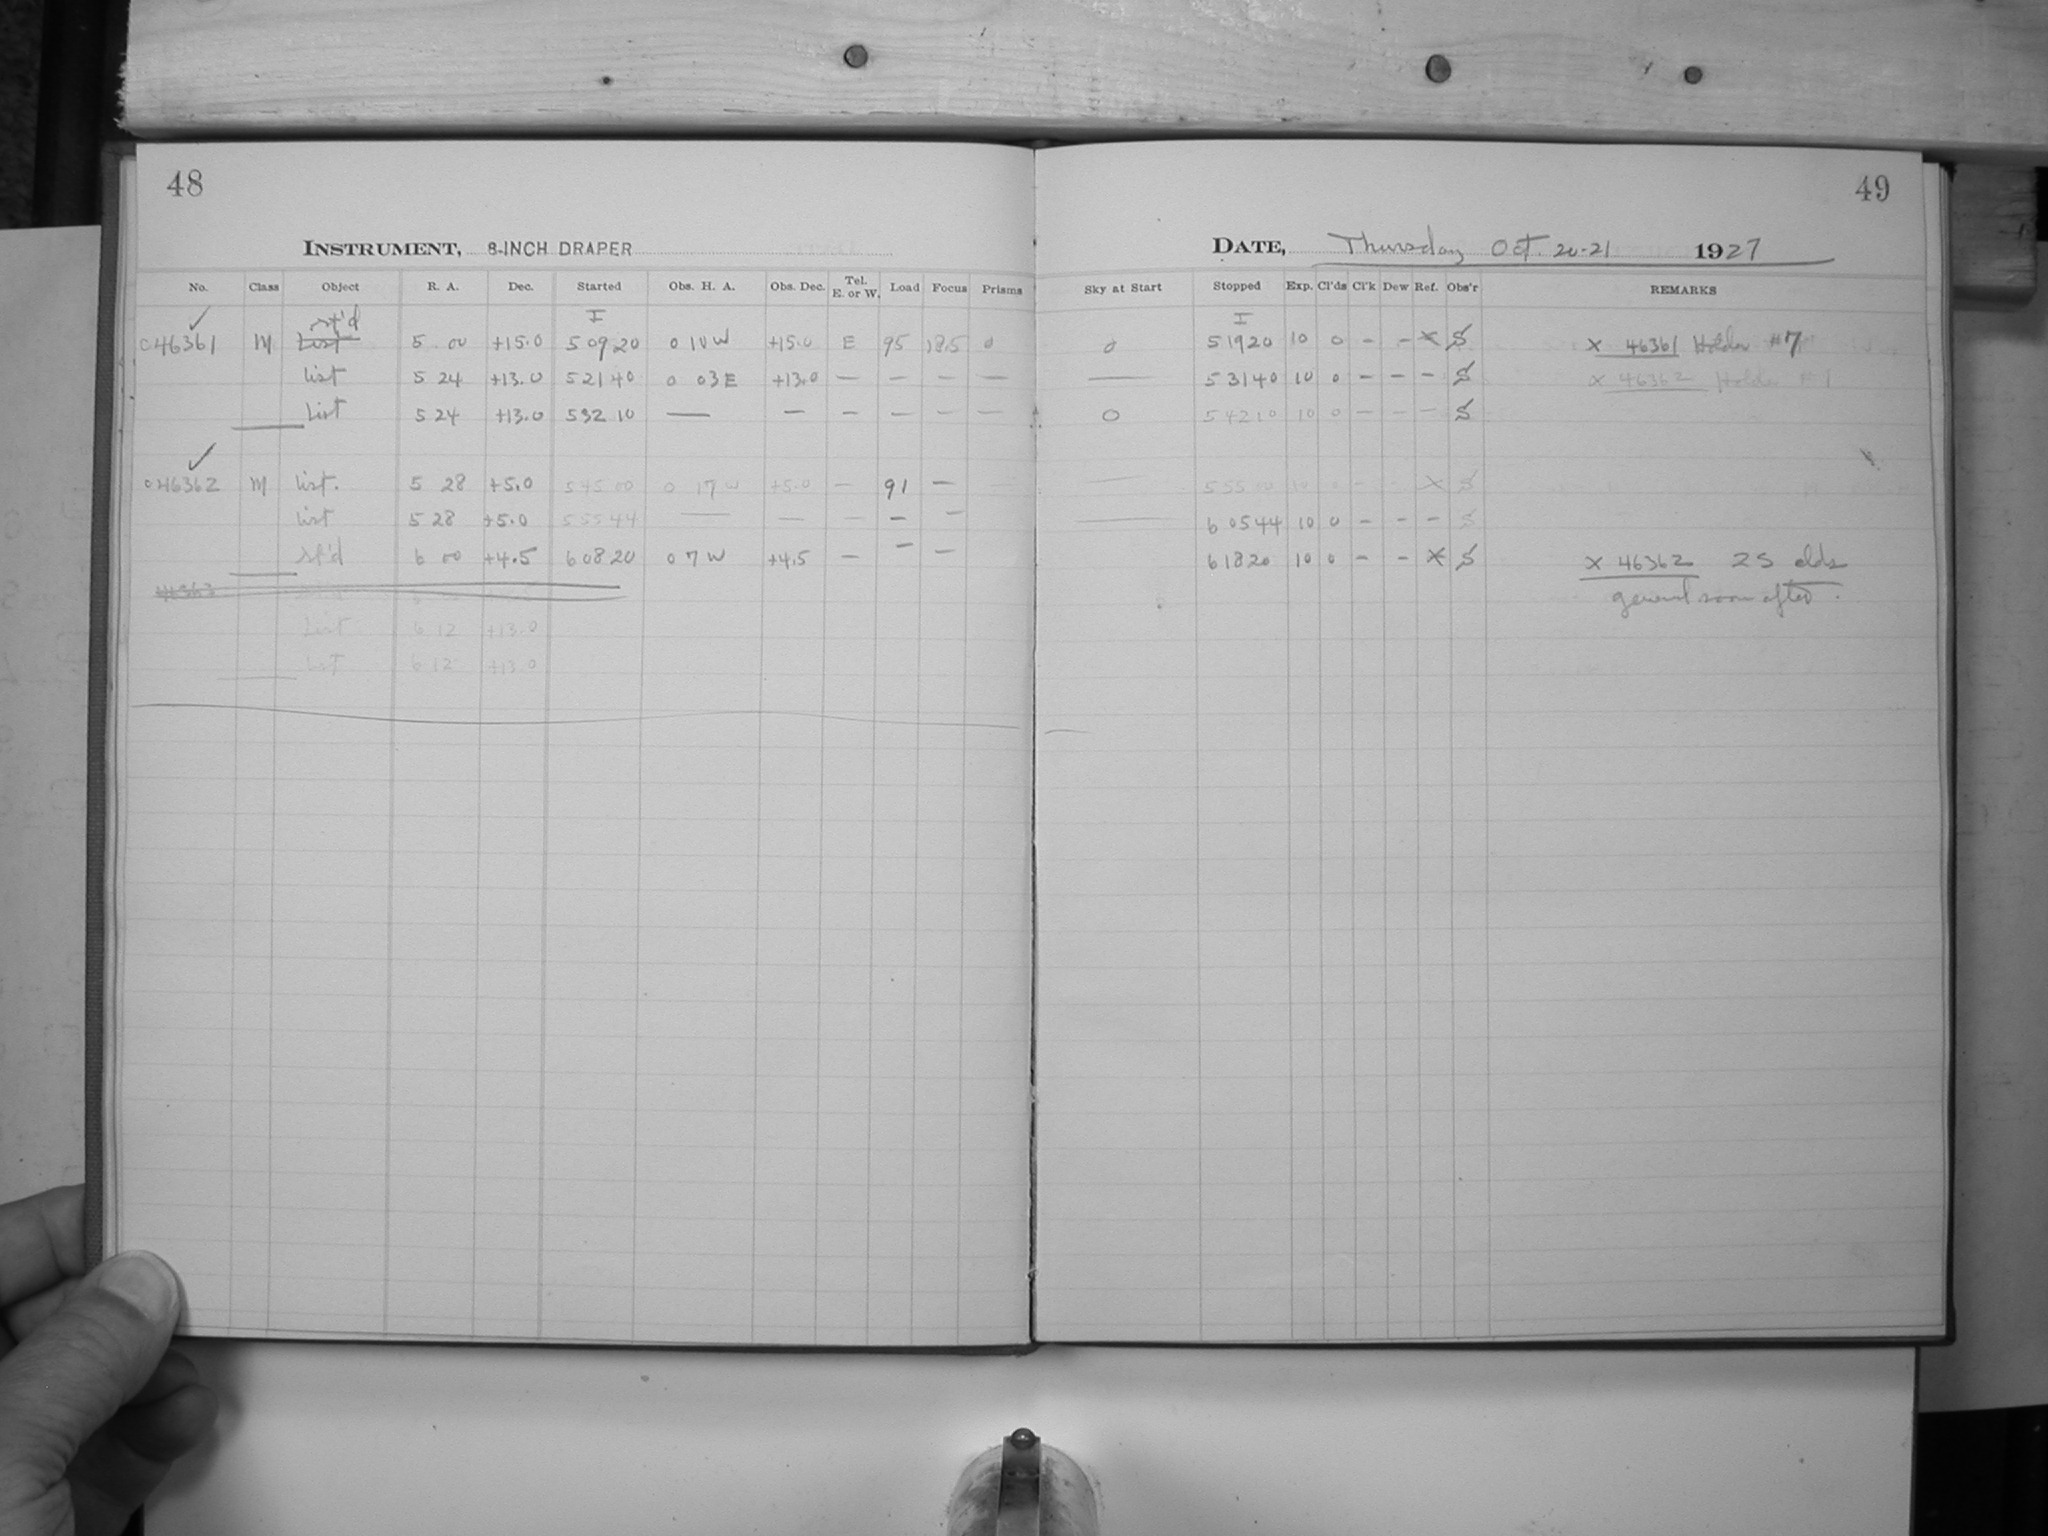 48
INSTRUMENT, 8-INCH DRAPER
No. Class Object R. A. Dec. Started Obs. H. A. Obs. Dec. Tel. E. or W. Load Focus Prisms
st'd I
c46361 M List 5 00 +15.0 5 09 20 0 10 W +15.0 E 95 18.5 0
list 5 24 +13.0 5 21 40 0 03 E +13.0 — — — —
List 5 24 +13.0 5 32 10 — — — — — —
c46362 M list. 5 28 +5.0 5 45 00 0 17 W +5.0 — 91 —
list 5 28 +5.0 5 55 44 — — — — —
st'd 6 00 +4.5 6 08 20 0 7 W +4.5 — — —
46363
List 6 12 +13.0
List 6 12 +13.0
49
DATE, Thursday Oct. 20-21 1927
Sky at Start Stopped Exp. Cl'ds Cl'k Dew Ref. Obs'r REMARKS
I
0 5 19 20 10 0 - - X S X 46361 Holder #7
— 5 31 40 10 0 - - - S X 46362 Holder #1
0 5 42 10 10 0 - - - S
— 5 55 00 10 0 - - X S
— 6 05 44 10 0 - - - S
6 18 20 10 0 - - X S X 46362 2S clds
general soon after.